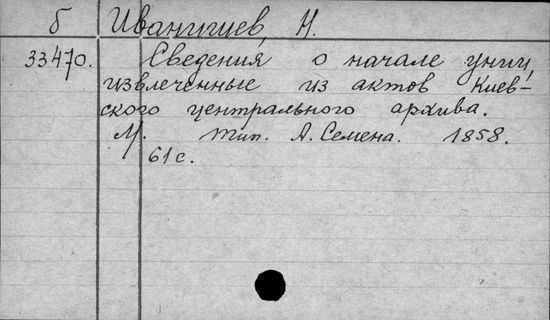 б Иванишев, Н.
33470. Сведения о начале унии,
извлеченные из актов Киев-
ского центрального архива.
М. Тип. А. Семена. 1858.
61 с.